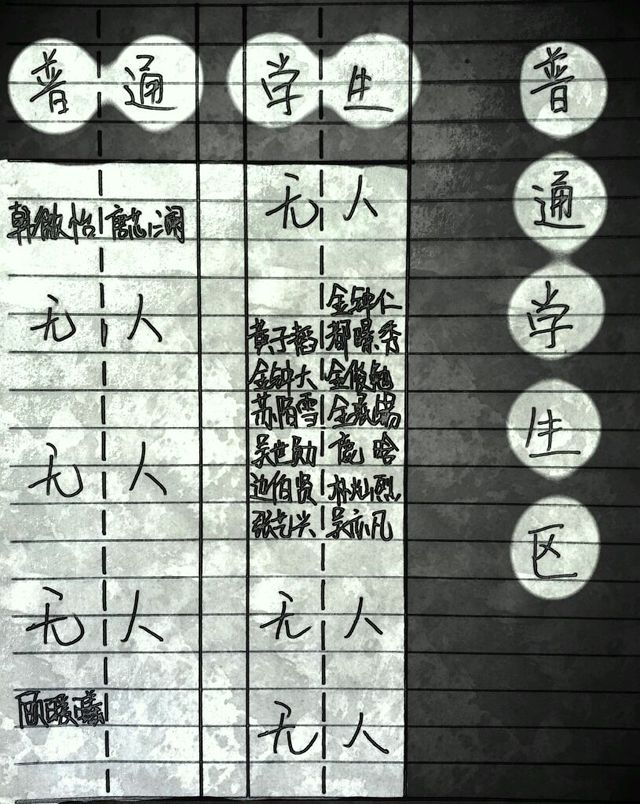 普通 学生
韩微怡
无人
金钟仁
无人
黄子韬 都暻秀
金钟大 金俊勉
苏陌雪
无人
吴世勋 鹿晗
边伯贤 朴灿烈
张艺兴 吴亦凡
无人 无人
顾暖曦
无人
普通学生区